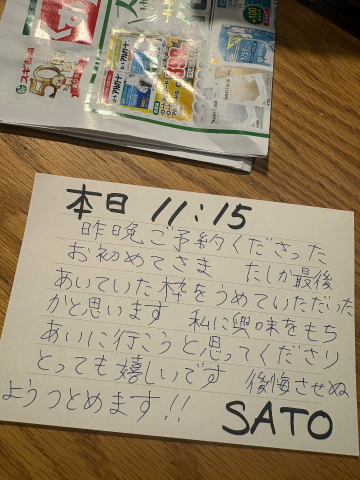 スギ薬局
50
本日 11:15
昨晩ご予約くださった
お初めてさま たしか最後
あいていた枠をうめていただいた
かと思います 私に興味をもち
あいに行こうと思ってくださり
とっても嬉しいです 後悔させぬ
ようつとめます!!
SATO